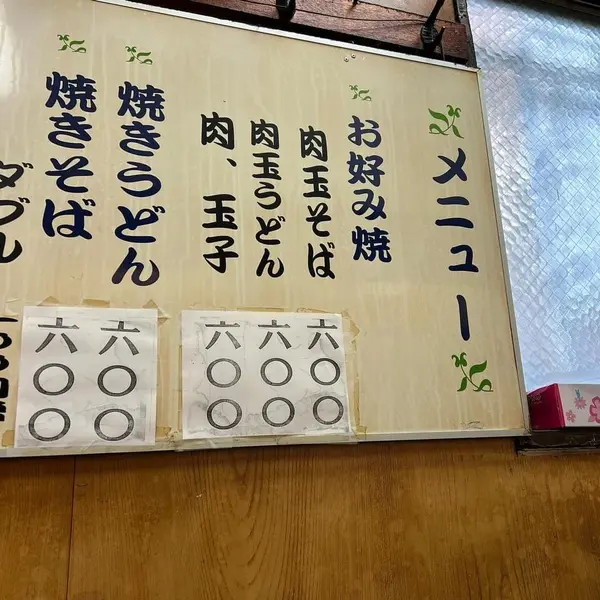 メニュー
お好み焼
肉玉そば 六〇〇
肉玉うどん 六〇〇
肉、玉子 六〇〇
焼きうどん 六〇〇
焼きそば 六〇〇
ダブル